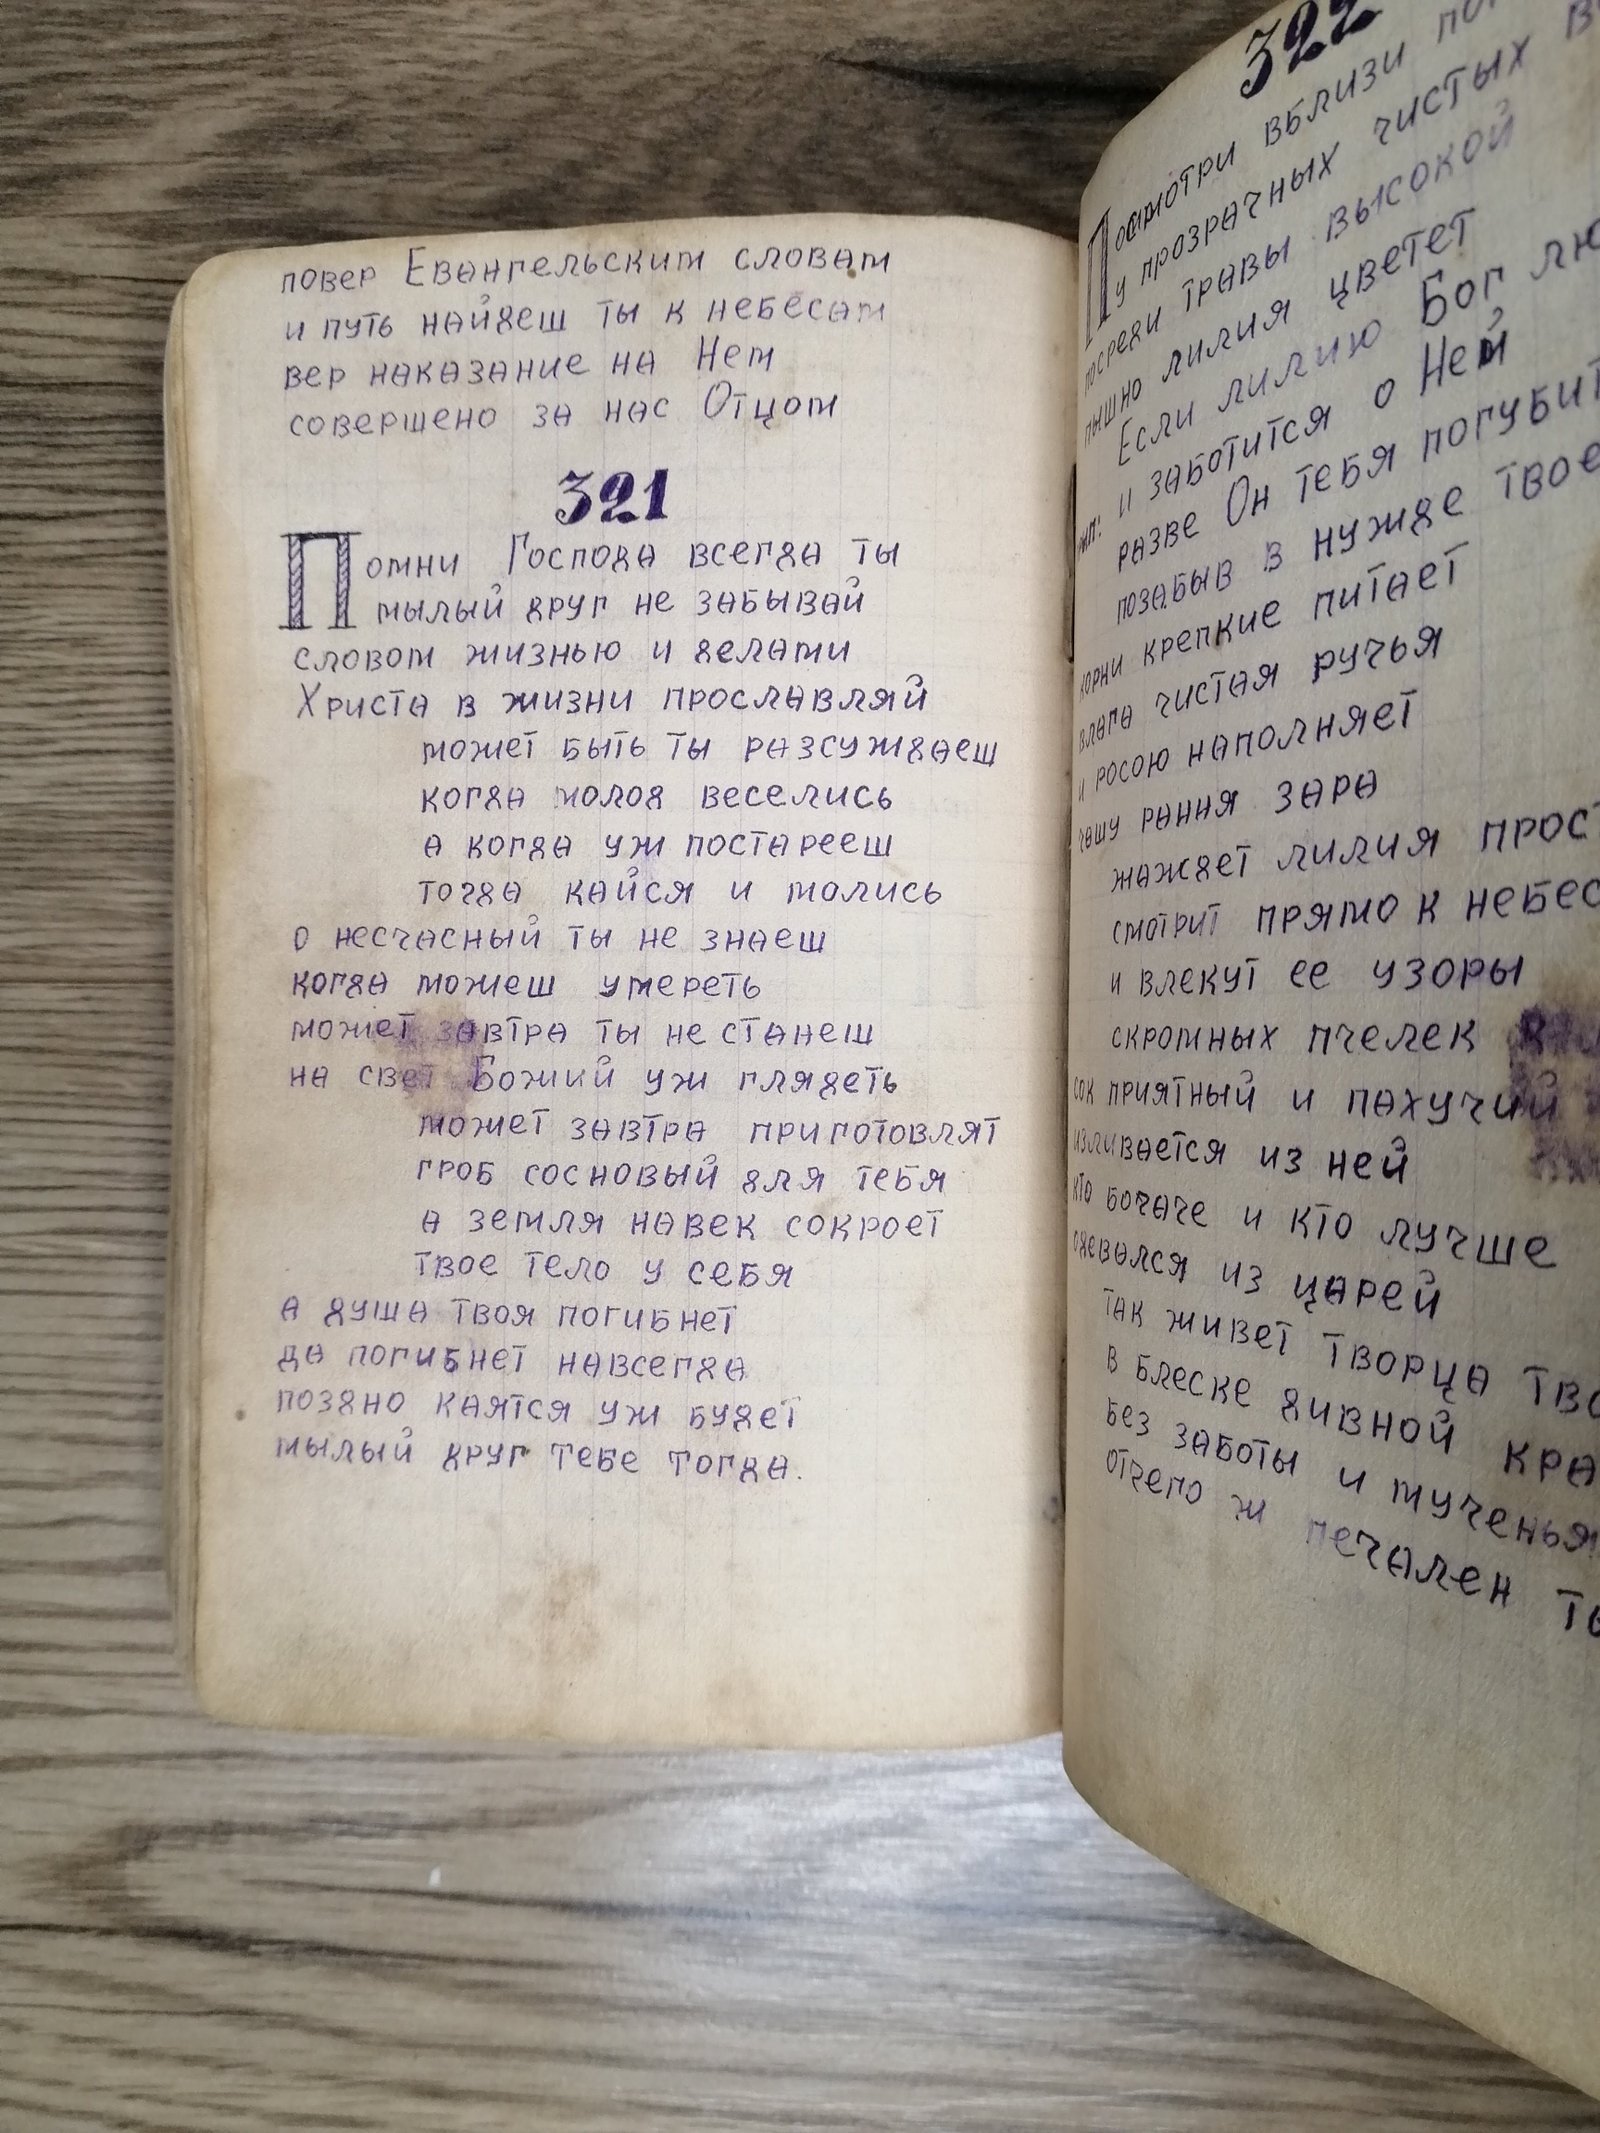 повер Евангельским словам
и путь найдеш ты к небесам
вер наказание на Нем
совершено за нас Отцом
321
Помни Господа всегда ты
мылый друг не забывай
словом жизнью и делами
Христа в жизни прославляй
может быть ты разсуждаеш
когда молод веселись
а когда уж постарееш
тогда кайся и молись
о несчасный ты не знаеш
когда можеш умереть
может завтра ты не станеш
на свет Божий уж глядеть
может завтра приготовлят
гроб сосновый для тебя
а земля навек сокроет
твое тело у себя
а душа твоя погибнет
да погибнет навсегда
поздно каятся уж будет
мылый друг тебе тогда.
322
Посмотри вблизи
у прозрачных чистых
посреди травы высокой
пышно лилия цветет
Если лилию Бог
и заботится о Ней
разве Он тебя погубит
позабыв в нужде
корни крепкие питает
влага чистая ручья
и росою наполняет
чашу рання зара
жаждет лилия
смотрит прямо к
и влекут ее узоры
скромных пчелек
сок приятный и пахучий
изливается из ней
кто богаче и кто лучше
одевался из царей
так живет творца
в блеске дивной
без заботы и мученья
отчего ж печален